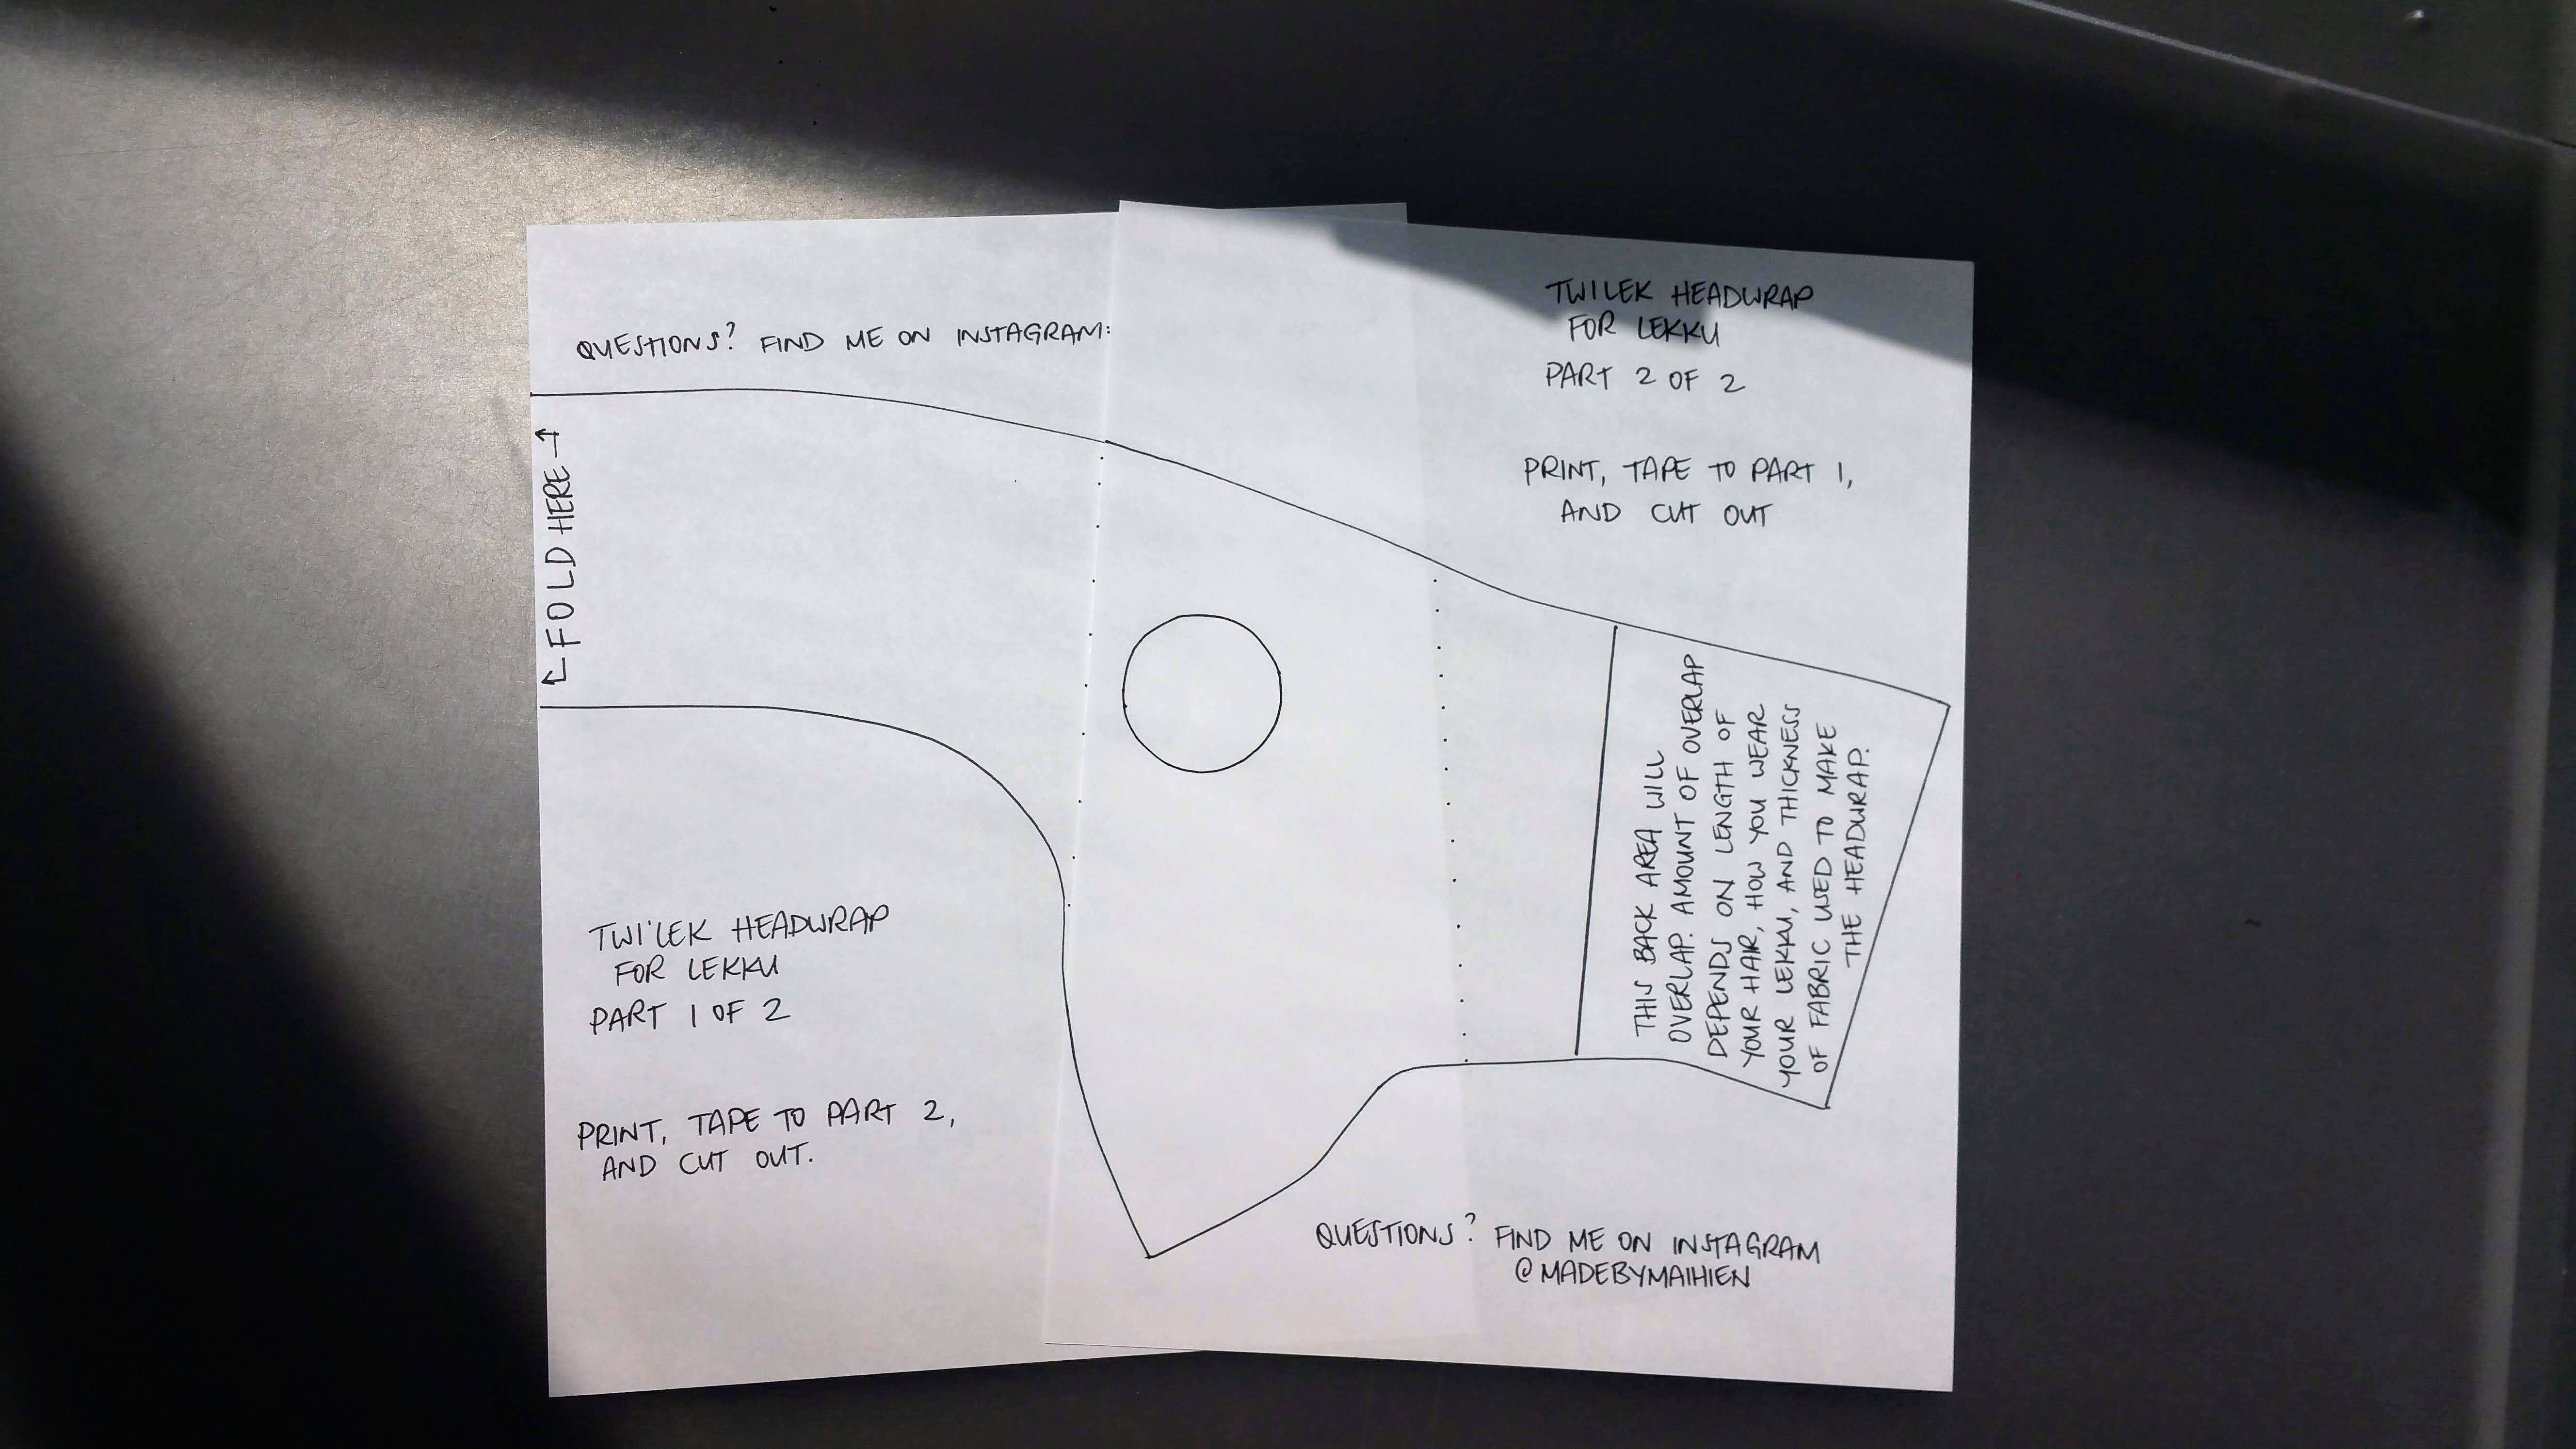 QUESTIONS? FIND ME ON INSTAGRAM:
← FOLD HERE →
TWI'LEK HEADWRAP
FOR LEKKU
PART 1 OF 2
PRINT, TAPE TO PART 2,
AND CUT OUT.
TWILEK HEADWRAP
FOR LEKKU
PART 2 OF 2
PRINT, TAPE TO PART 1,
AND CUT OUT
THIS BACK AREA WILL
OVERLAP. AMOUNT OF OVERLAP
DEPENDS ON LENGTH OF
YOUR HAIR, HOW YOU WEAR
YOUR LEKKU, AND THICKNESS
OF FABRIC USED TO MAKE
THE HEADWRAP.
QUESTIONS? FIND ME ON INSTAGRAM
@MADEBYMAIHIEN